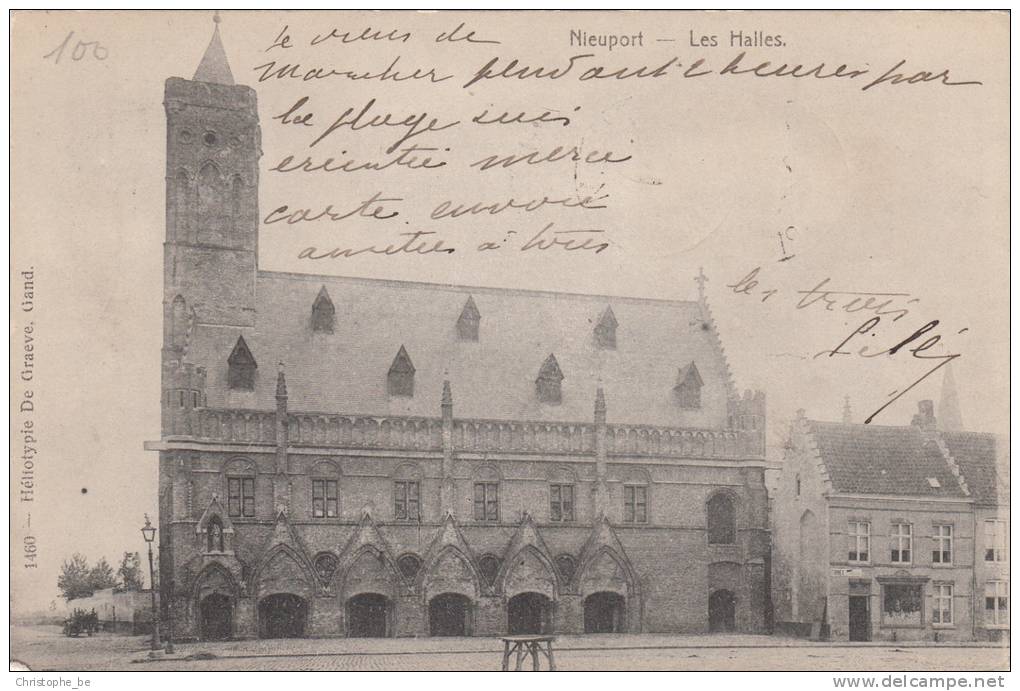 100
Nieuport — Les Halles.
Je viens de
marcher pendant 2 heures par
la plage suis
ereintée merci
carte envoié
amitiés à tous
les trois
1460 — Héliotypie De Graeve, Gand.
Christophe_be
www.delcampe.net